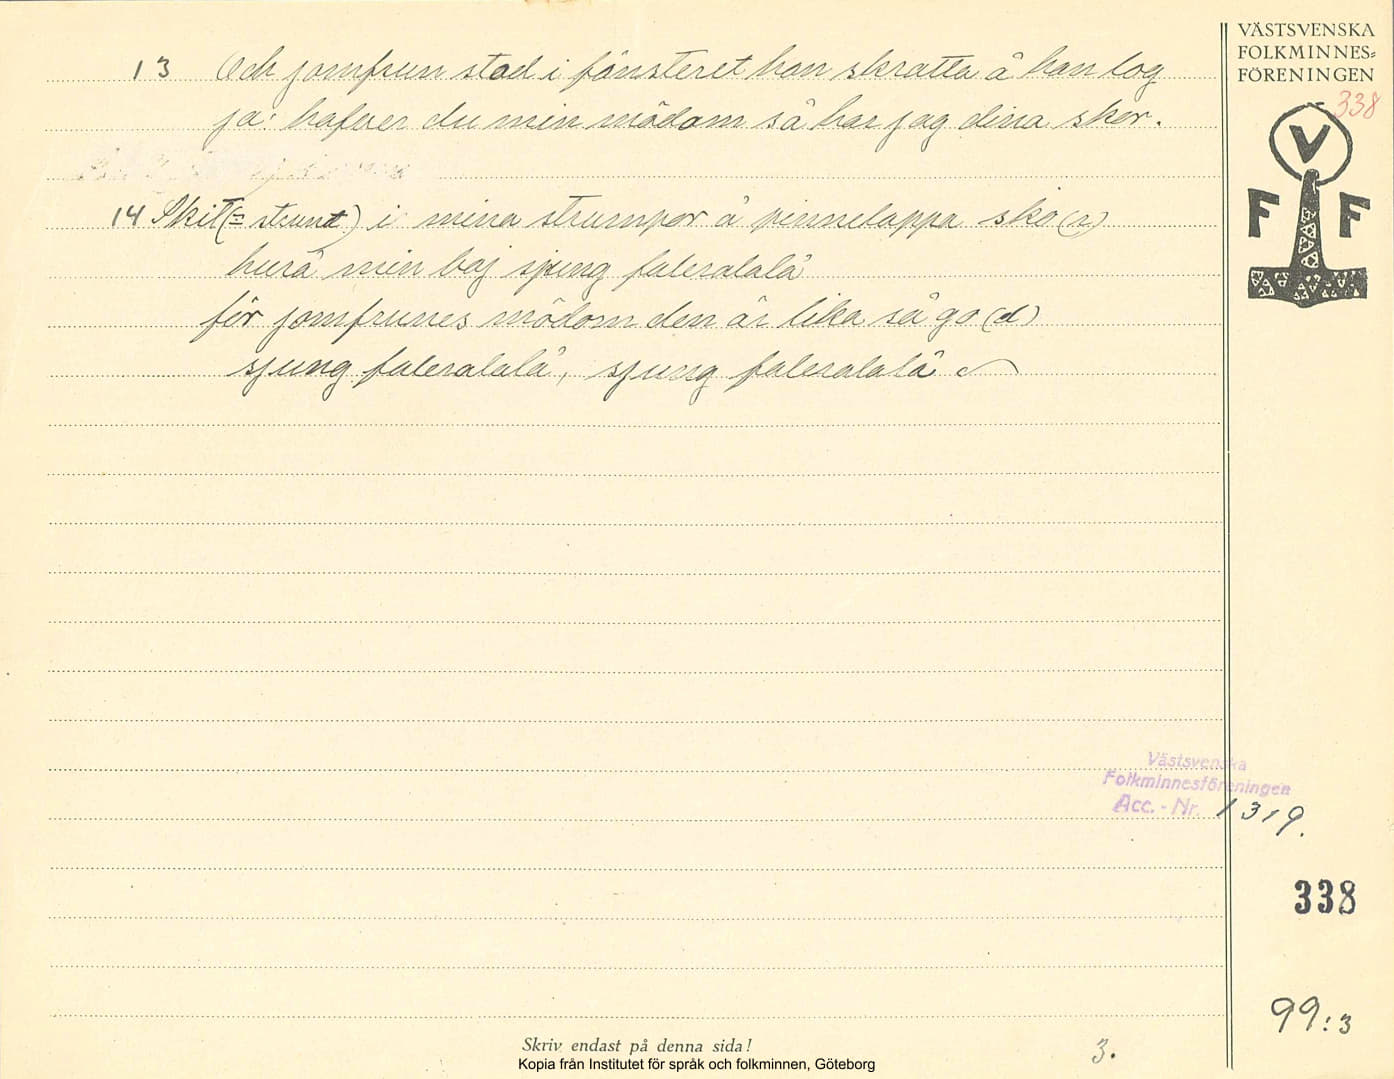 VÄSTSVENSKA
FOLKMINNES=
FÖRENINGEN
338
V
F F
13 Och jomfrun stod i fönsteret hon skratta å hon log
ja: hafver du min mödom så har jag dina skor.
14 Skit (= strunt) i mina strumpor å pinnelappa sko(r)
hurå min boj sjung faleralalå
för jomfrunes mödom den är lika så go(d)
sjung faleralalå, sjung faleralalå
Västsvenska
Folkminnesföreningen
Acc.-Nr. 1319.
338
99:3
3.
Skriv endast på denna sida!
Kopia från Institutet för språk och folkminnen, Göteborg